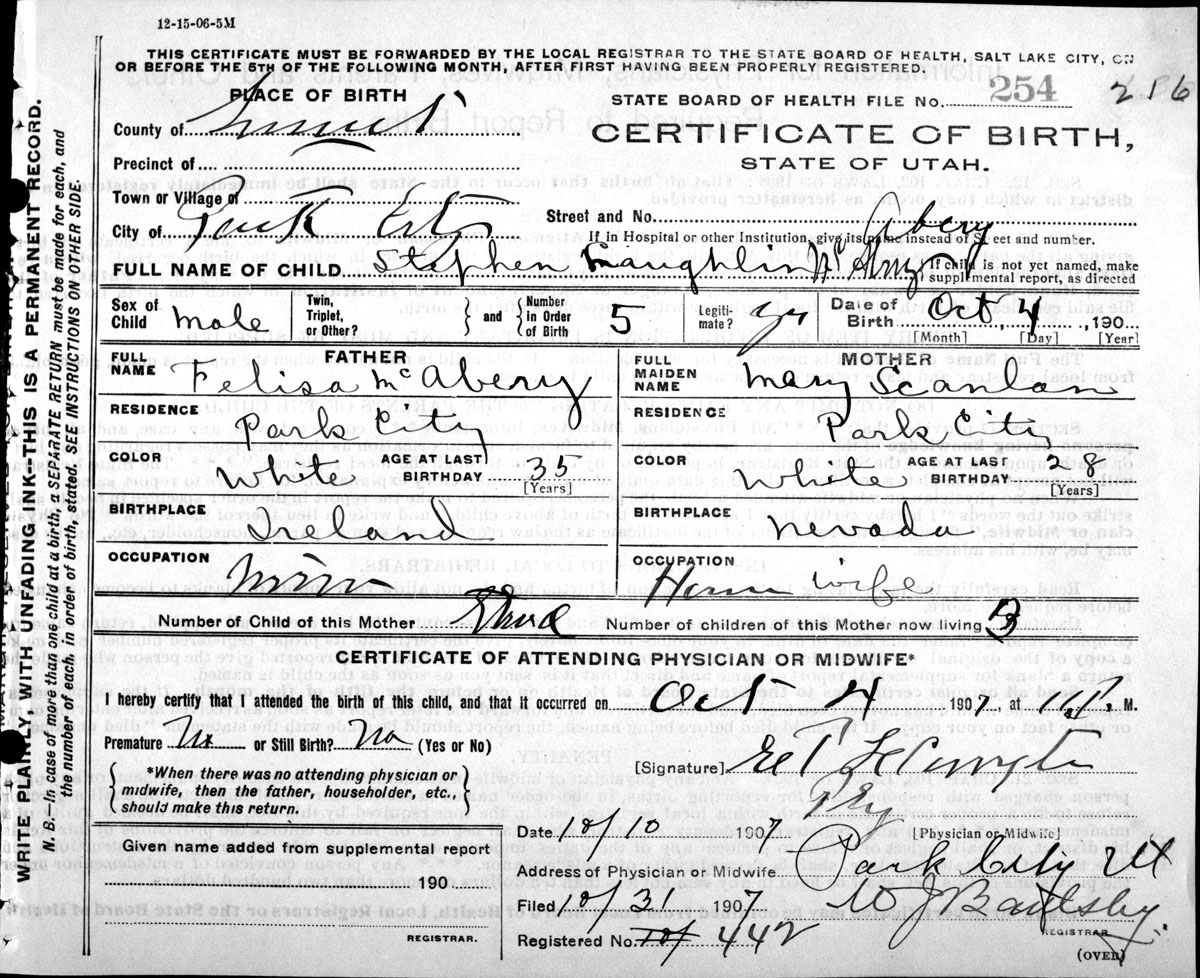 12-15-06-5M
THIS CERTIFICATE MUST BE FORWARDED BY THE LOCAL REGISTRAR TO THE STATE BOARD OF HEALTH, SALT LAKE CITY, ON
OR BEFORE THE 5TH OF THE FOLLOWING MONTH, AFTER FIRST HAVING BEEN PROPERLY REGISTERED.
PLACE OF BIRTH
STATE BOARD OF HEALTH FILE No. 254 256
County of Summit
CERTIFICATE OF BIRTH,
STATE OF UTAH.
Precinct of
Town or Village of
City of Park City
Street and No.
If in Hospital or other Institution, give its name instead of Street and number.
FULL NAME OF CHILD Stephen Laughlin Mc Abery
If child is not yet named, make
supplemental report, as directed
Sex of Child male
Twin, Triplet, or Other?
and Number in Order of Birth 5
Legitimate? yes
Date of Birth Oct, 4, 190
[Month] [Day] [Year]
FATHER
FULL NAME Felisa McAbery
RESIDENCE Park City
COLOR White AGE AT LAST BIRTHDAY 35
[Years]
BIRTHPLACE Ireland
OCCUPATION Miner
MOTHER
FULL MAIDEN NAME Mary Scanlan
RESIDENCE Park City
COLOR White AGE AT LAST BIRTHDAY 28
[Years]
BIRTHPLACE Nevada
OCCUPATION House wife
Number of Child of this Mother Third Number of children of this Mother now living 3
CERTIFICATE OF ATTENDING PHYSICIAN OR MIDWIFE*
I hereby certify that I attended the birth of this child, and that it occurred on Oct 4 1907, at M.
Premature? No or Still Birth? No (Yes or No)
*When there was no attending physician or
midwife, then the father, householder, etc.,
should make this return.
[Signature]
Date 10/10 1907
[Physician or Midwife]
Given name added from supplemental report
190
REGISTRAR.
Address of Physician or Midwife Park City Ut
Filed 10/31 1907
REGISTRAR.
Registered No. 442
(OVER)
WRITE PLAINLY WITH UNFADING INK—THIS IS A PERMANENT RECORD.
N. B.—In case of more than one child at a birth, a SEPARATE RETURN must be made for each, and
the number of each, in order of birth, stated. SEE INSTRUCTIONS ON OTHER SIDE.